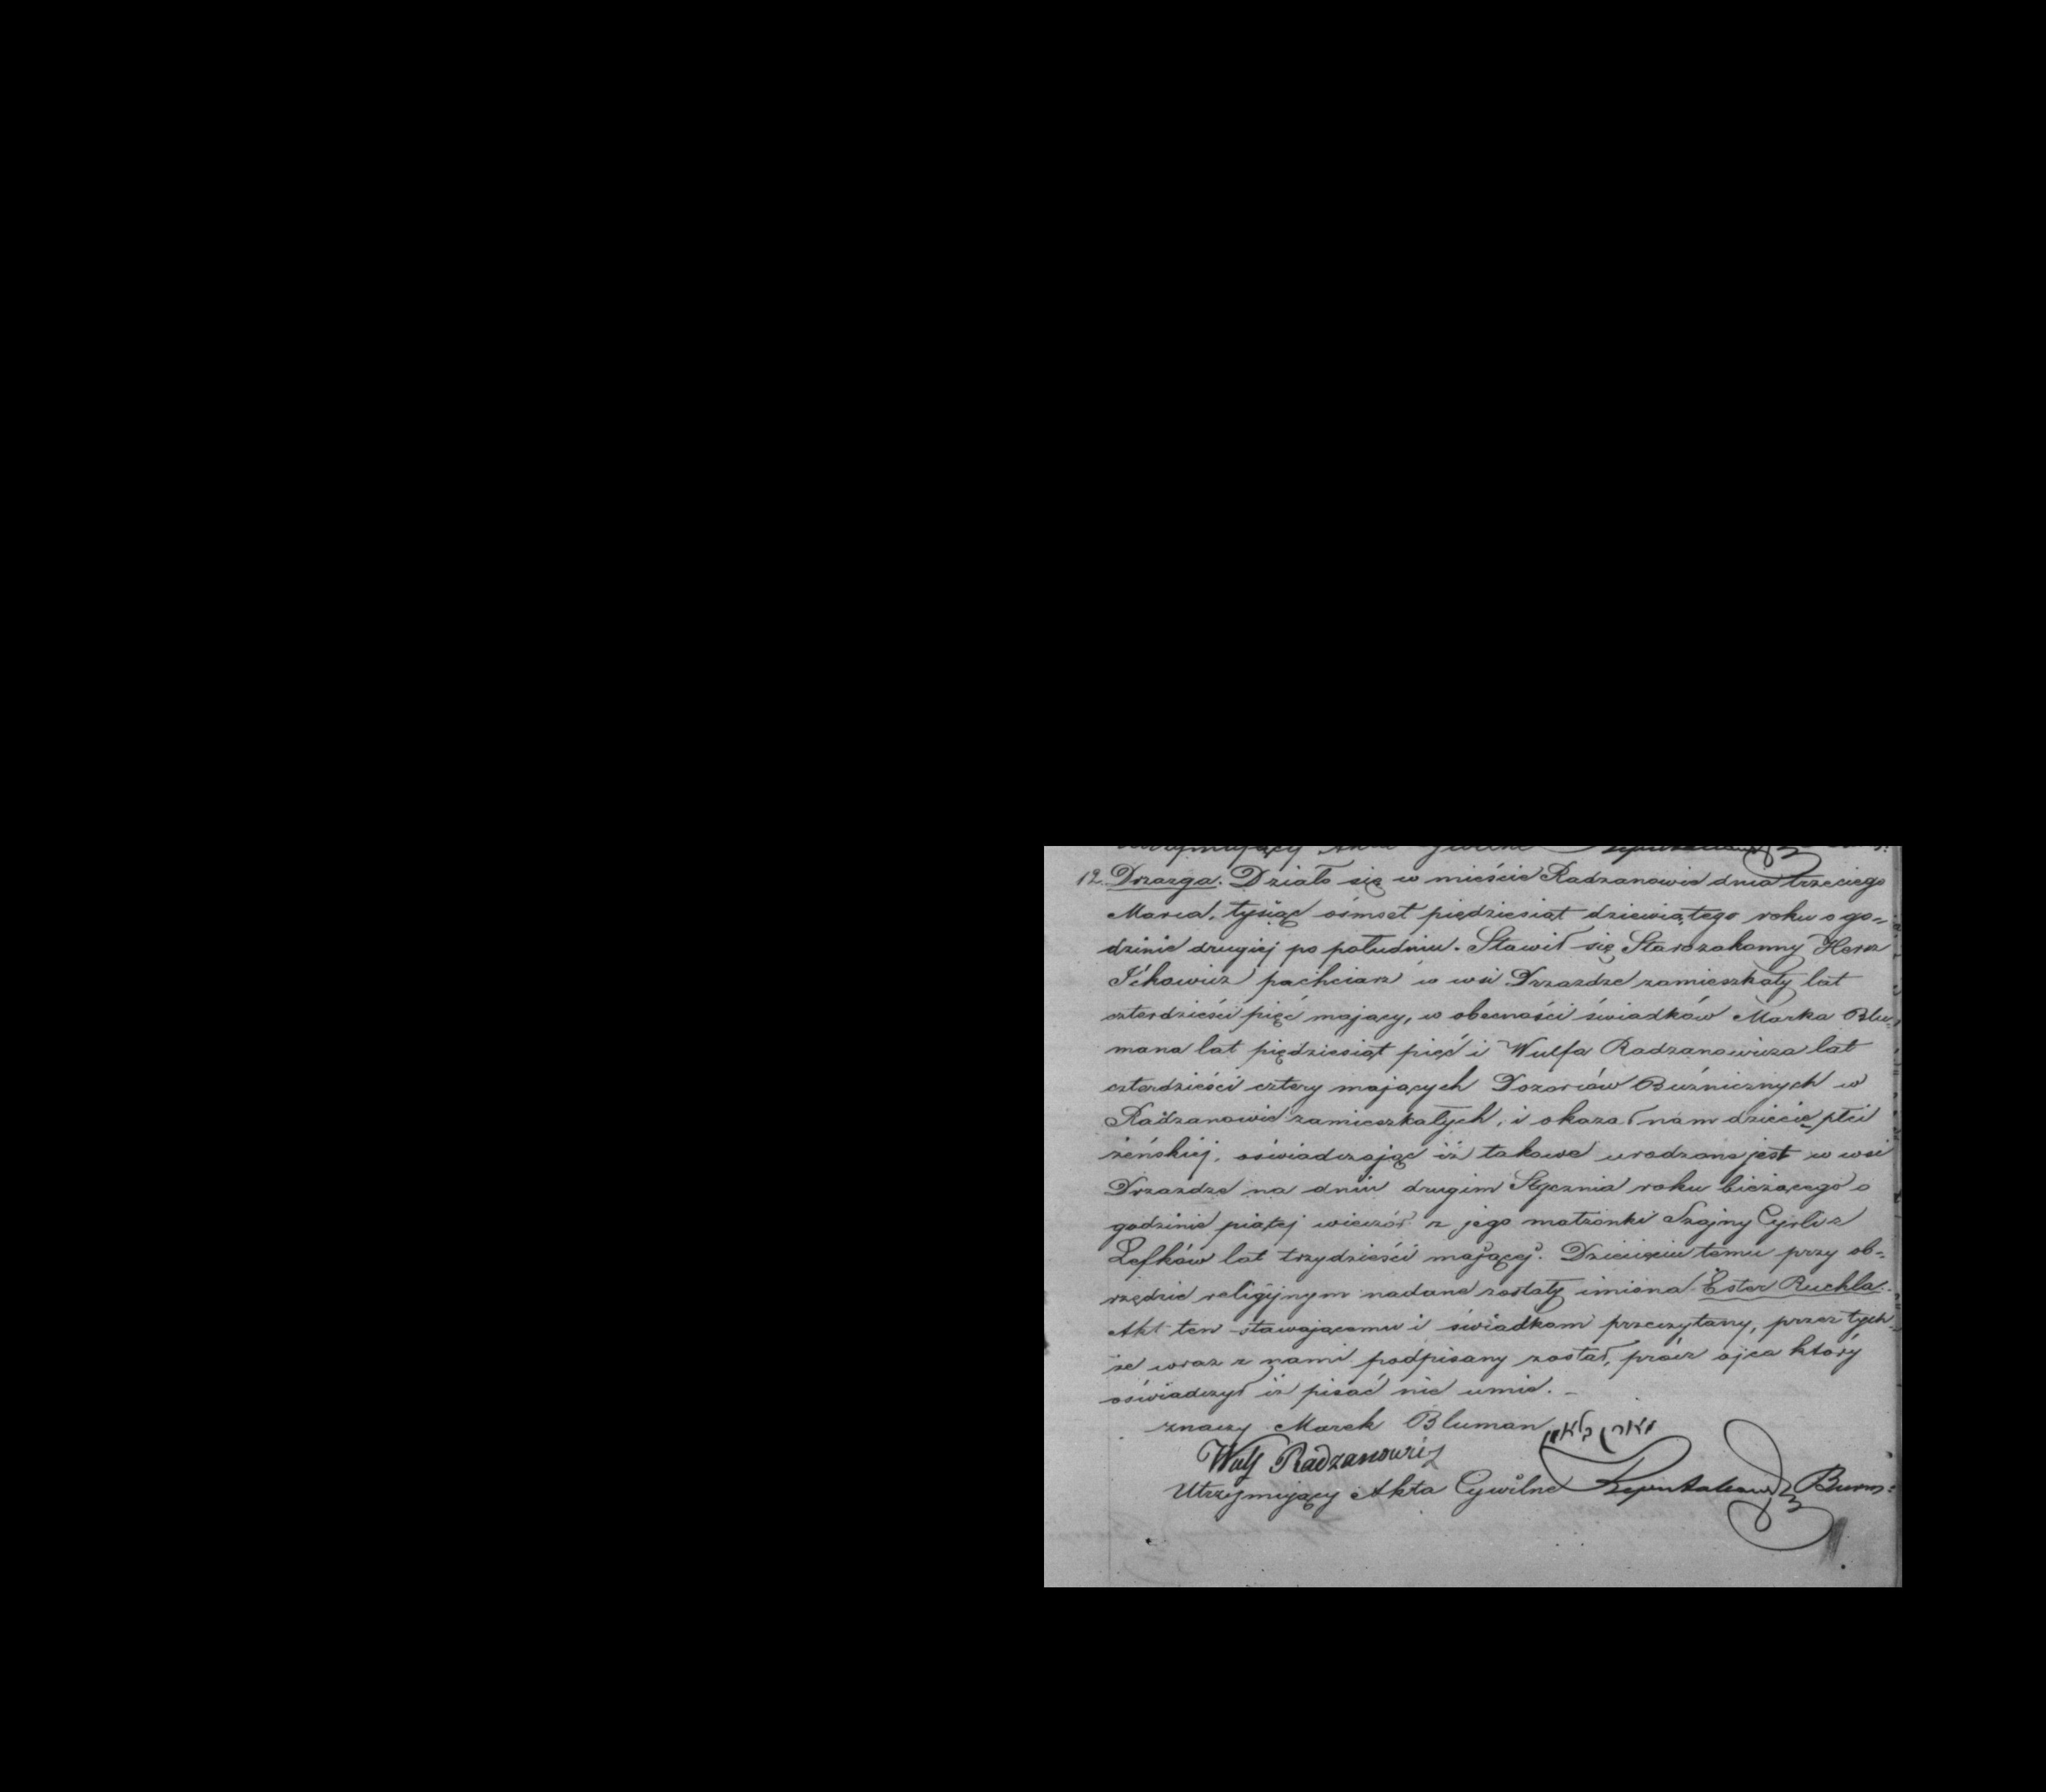 12. Drzazga. Działo się w mieście Radzanowie dnia trzeciego
Marca, tysiąc ośmset piędziesiąt dziewiątego roku o go-
dzinie drugiej po południu. Stawił się Starozakonny Hersz
Ickowicz pachciarz w wsi Drzazdze zamieszkały lat
czterdzieści pięć mający, w obecności świadków Marka Blu-
mana lat piędziesiąt pięć i Wulfa Radzanowicza lat
czterdzieści cztery mających Dozorców Buźnicznych w
Radzanowie zamieszkałych, i okazał nam dziecie płci
żeńskiej, oświadczając iż takowe urodzone jest w wsi
Drzazdze na dniu drugim Stycznia roku bieżącego o
godzinie piątej wieczór z jego małżonki Szajny Cyrli z
Lefków lat trzydzieści mającej. Dziecięciu temu przy ob-
rzędzie religijnym nadane zostały imiona Ester Ruchla.
Akt ten stawającemu i świadkom przeczytany, przez tych-
że wraz z nami podpisany został, prócz ojca który
oświadczył iż pisać nie umie. -
znaczy Marek Bluman
Wulf Radzanowicz
Utrzymujący Akta Cywilne Burm: